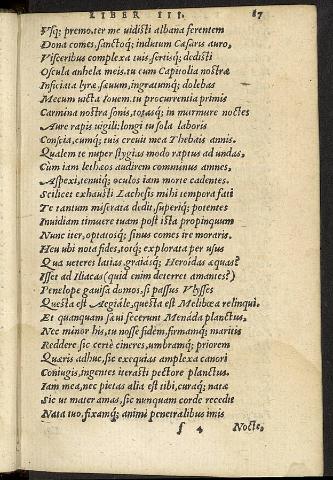 LIBER III. 87
Vsq; premo. ter me uidisti albana ferentem
Dona comes, sanctoq; indutum Cæsaris auro,
Visceribus complexa tuis. sertisq; dedisti
Oscula anhela meis. tu cum Capitolia nostræ
Inficiata lyræ, sæuum, ingratumq; dolebas
Mecum uicta Iouem. tu procurrentia primis
Carmina nostra sonis, totasq; in murmure noctes
Aure rapis uigili: longi tu sola laboris
Conscia, cumq; tuis creuit mea Thebais annis.
Qualem te nuper stygias modo raptus ad undas,
Cum iam lethæos audirem comminus amnes,
Aspexi, tenuiq; oculos iam morte cadentes.
Scilicet exhausti Lachesis mihi tempora fati
Te tantum miserata dedit, superiq; potentes
Inuidiam timuere tuam. post ista propinquum
Nunc iter, optatosq; sinus comes ire moraris.
Heu ubi nota fides, totq; explorata per usus
Qua ueteres latias graiasq; Heroidas æquas?
Isset ad Iliacas (quid enim deterret amantes?)
Penelope gauisa domos, si passus Vlysses
Questa est Aegiale, questa est Melibœa relinqui.
Et quanquam sæui fecerunt Mænada planctus.
Nec minor his, tu nosse fidem, firmamq; maritis
Reddere. sic certè cineres, umbramq; priorem
Quæris adhuc, sic exequias amplexa canori
Coniugis, ingentes iterasti pectore planctus.
Iam mea, nec pietas alia est tibi, curaq; natæ
Sic ut mater amas, sic nunquam corde recedit
Nata tuo, fixamq; animi penetralibus imis
f 4 Nocte,